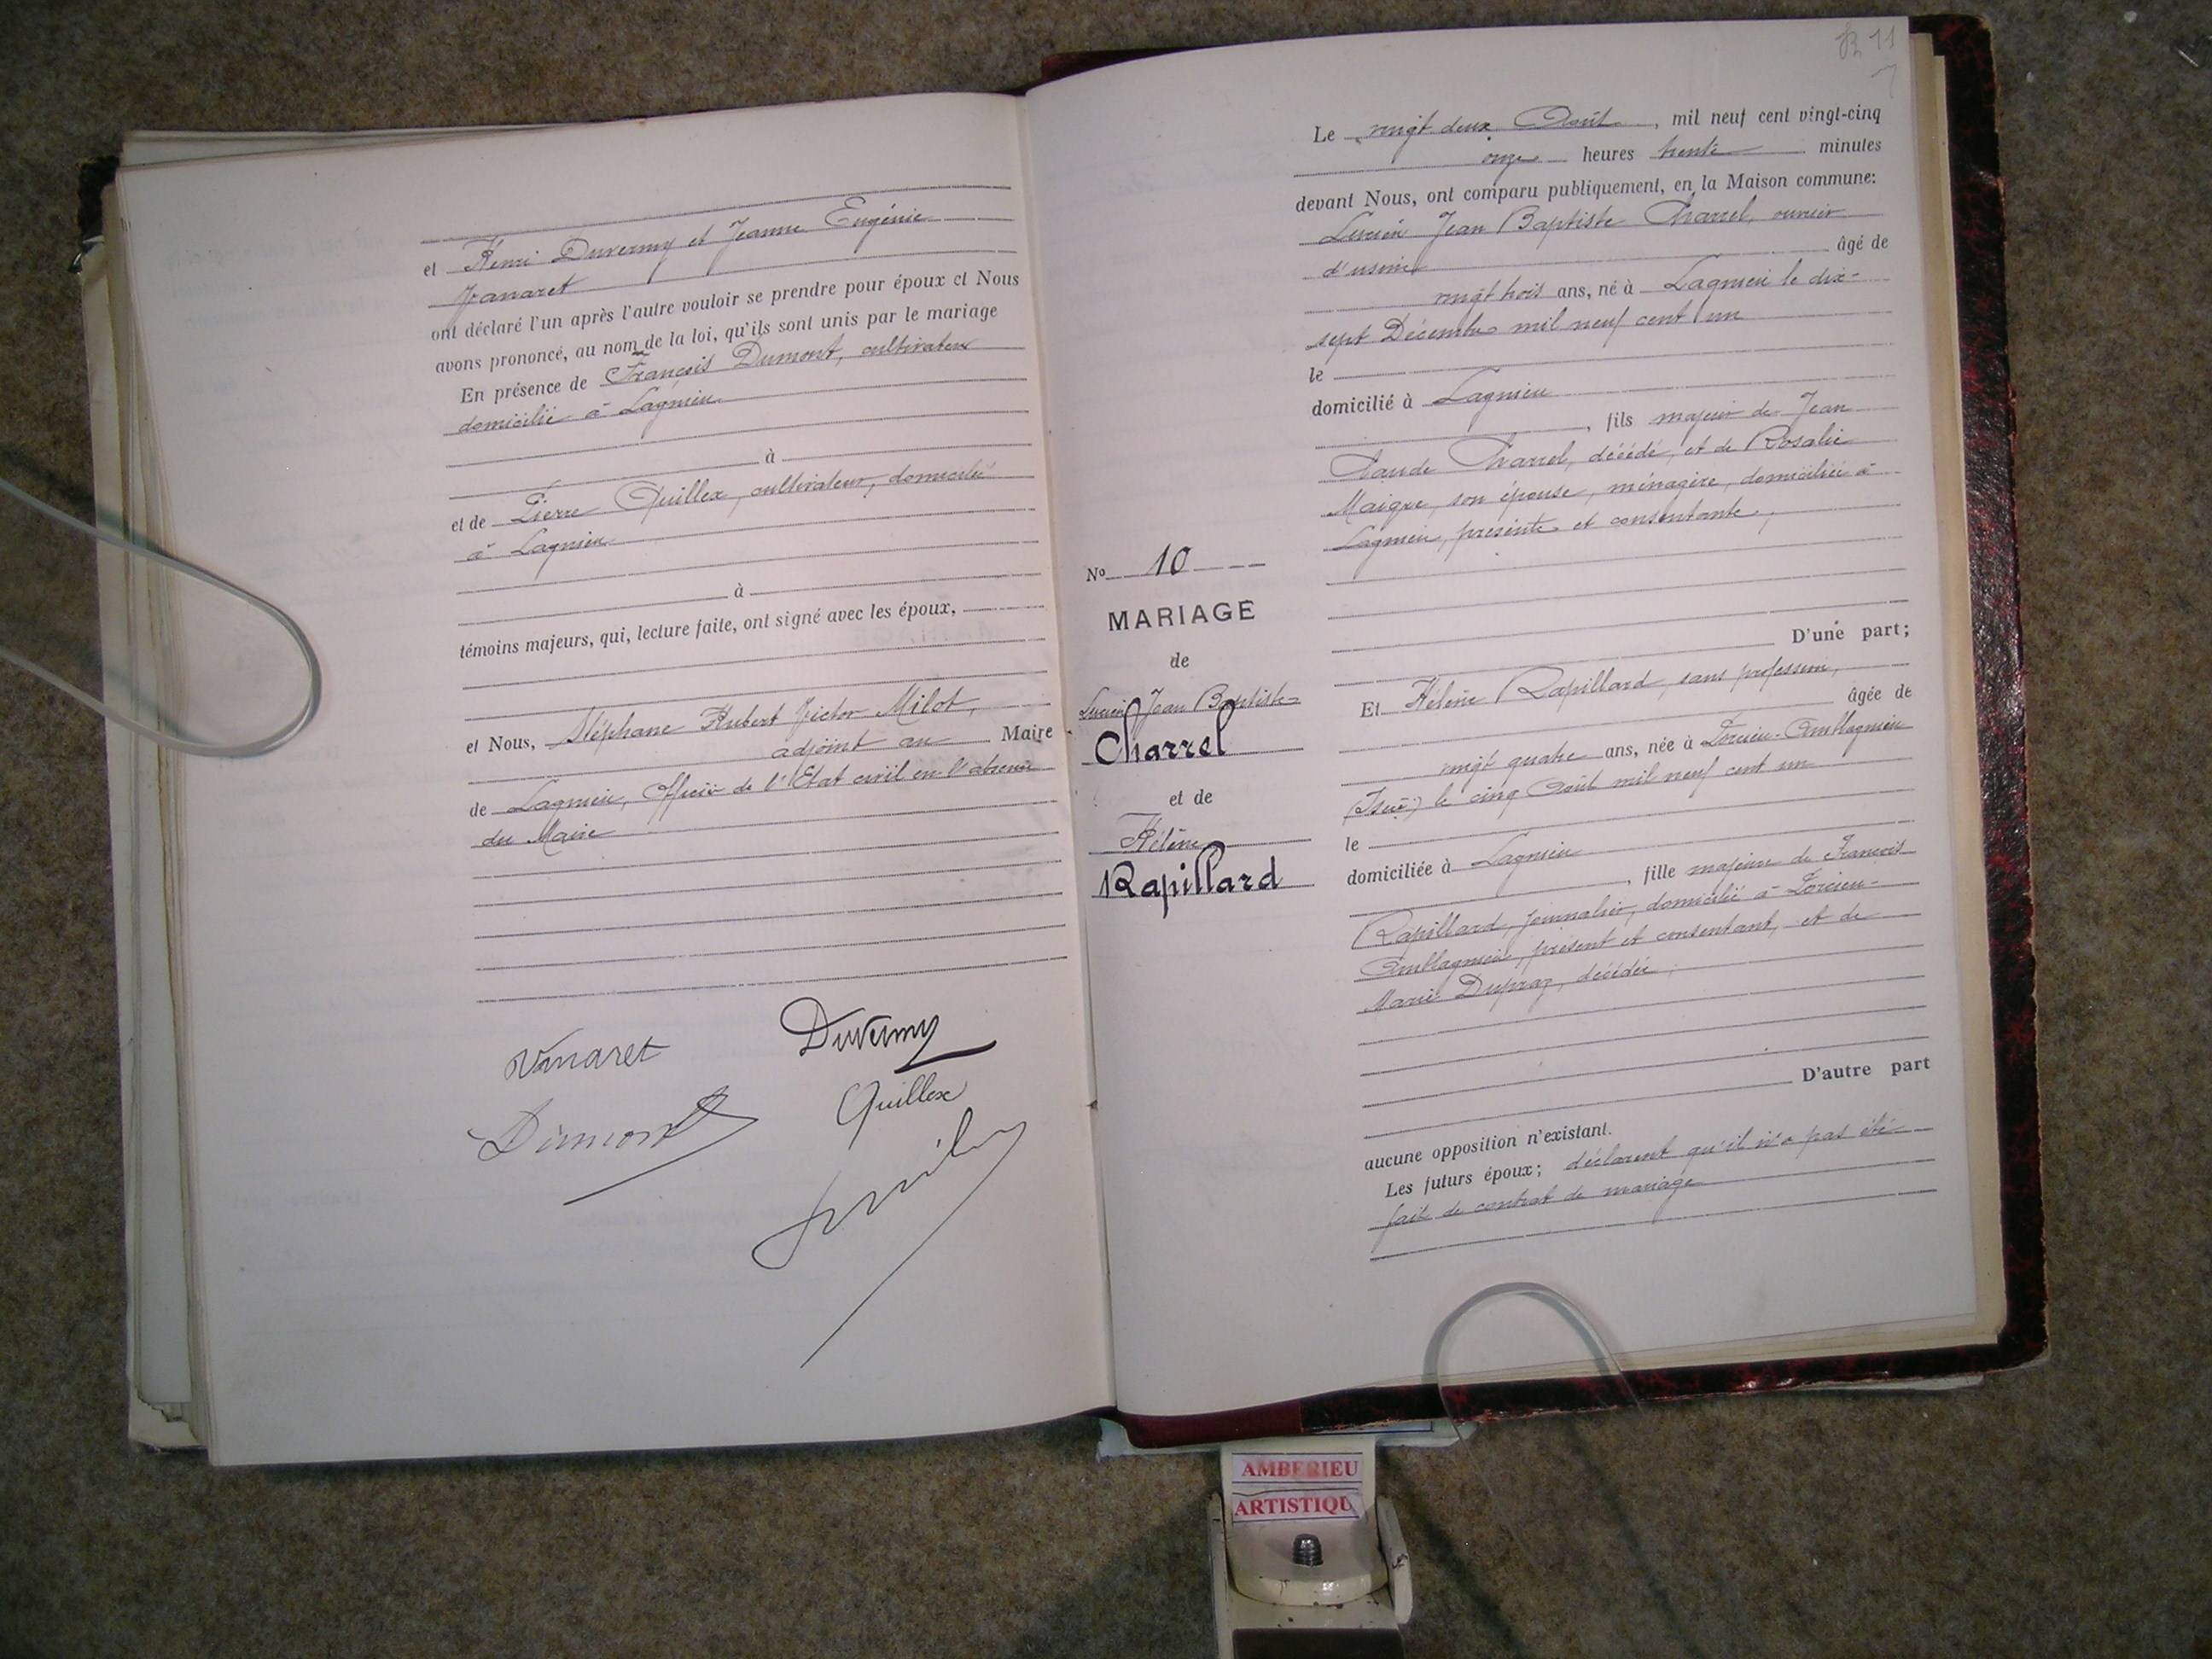 et Henri Duvermy et Jeanne Eugénie
Vanaret
ont déclaré l'un après l'autre vouloir se prendre pour époux et Nous
avons prononcé, au nom de la loi, qu'ils sont unis par le mariage
En présence de François Dumont, cultivateur
domicilié à Lagnieu
à
et de Pierre Quillex, cultivateur, domicilié
à Lagnieu
à
témoins majeurs, qui, lecture faite, ont signé avec les époux,
et Nous, Stéphane Hubert Victor Milot,
adjoint au Maire
de Lagnieu, Officier de l'Etat civil en l'absence
du Maire
Vanaret Duvermy
Dumont Quillex
11
Le vingt deux Août, mil neuf cent vingt-cinq
onze heures trente minutes
devant Nous, ont comparu publiquement, en la Maison commune:
Lucien Jean Baptiste Charrel, ouvrier
d'usine âgé de
vingt trois ans, né à Lagnieu le dix-
sept Décembre mil neuf cent un
le
domicilié à Lagnieu
, fils majeur de Jean
Claude Charrel, décédé, et de Rosalie
Maigre, son épouse, ménagère, domiciliée à
Lagnieu, présente et consentante,
D'une part;
No 10
MARIAGE
de
Lucien Jean Baptiste
Charrel
et de
Hélène
Rapillard
Et Hélène Rapillard, sans profession,
âgée de
vingt quatre ans, née à Porcieu-Amblagnieu
(Isère) le cinq Août mil neuf cent un
le
domiciliée à Lagnieu
, fille majeure de François
Rapillard, journalier, domicilié à Porcieu-
Amblagnieu, présent et consentant, et de
Marie Dupraz, décédée;
D'autre part
aucune opposition n'existant.
Les futurs époux; déclarent qu'il n'a pas été
fait de contrat de mariage
AMBERIEU
ARTISTIQU